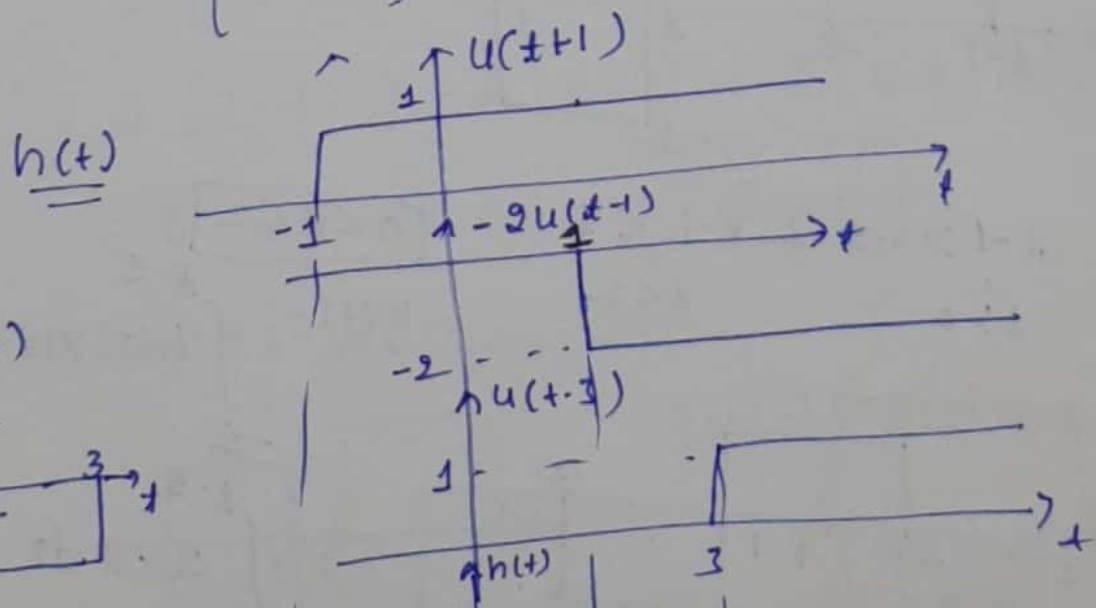 u(t+1)
1
h(t)
t
-1
-2u(t-1)
1
t
)
-2
u(t-3)
3
t
1
t
h(t)
3